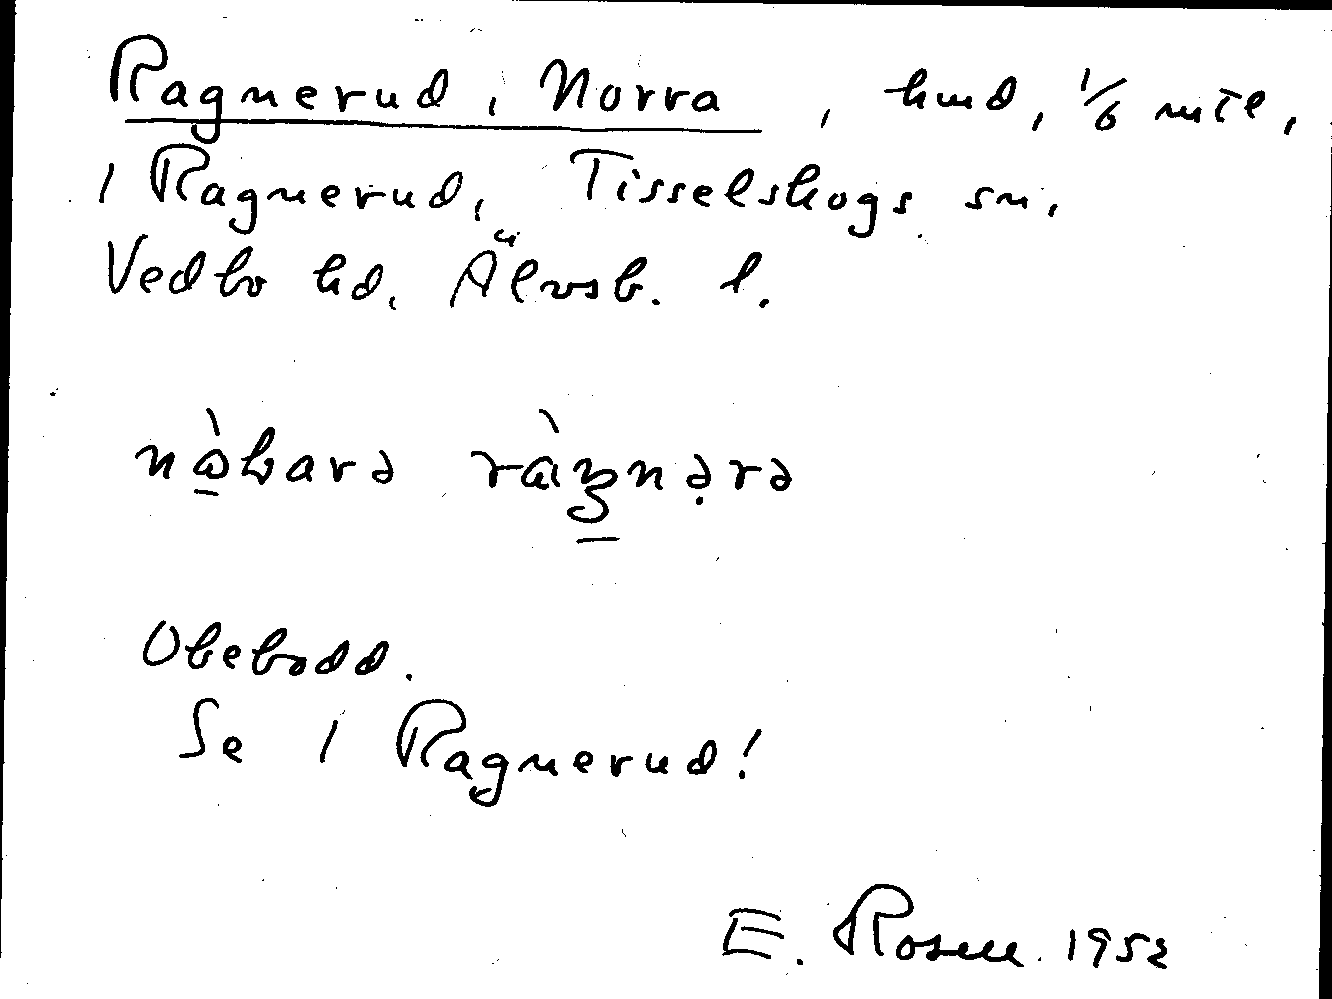 Ragnerud, Norra, hmd, 1/6 mtl,
1 Ragnerud, Tisselskogs sn,
Vedbo hd, Älvsb. l.
Obebodd.
Se 1 Ragnerud!
E. Rosell 1952